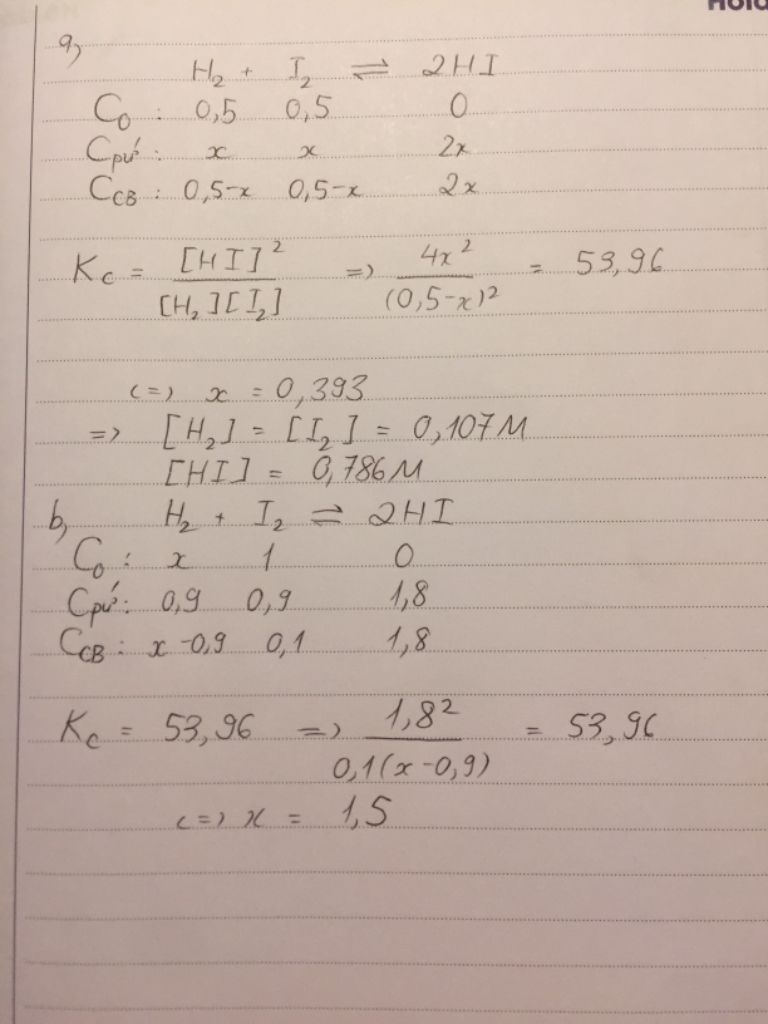 Hold
a,
H₂ + I₂ ⇌ 2HI
C₀ : 0,5 0,5 0
Cpứ : x x 2x
C_CB : 0,5-x 0,5-x 2x
K_c = [HI]² / [H₂][I₂] => 4x² / (0,5-x)² = 53,96
<=> x = 0,393
=> [H₂] = [I₂] = 0,107M
[HI] = 0,786M
b, H₂ + I₂ ⇌ 2HI
C₀ : x 1 0
Cpứ : 0,9 0,9 1,8
C_CB : x-0,9 0,1 1,8
K_c = 53,96 => 1,8² / 0,1(x-0,9) = 53,96
<=> x = 1,5